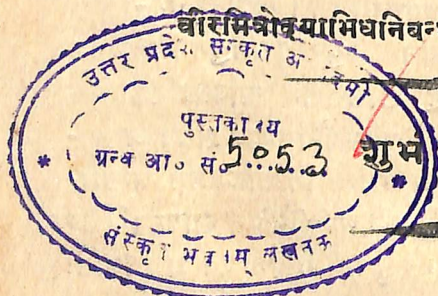 वीरमित्रोदयाभिधनिबन
उत्तर प्रदेश संस्कृत अ
पुस्तकालय
ग्रन्थ आ० सं० 5053
शुभ
संस्कृत भवनम् लखनऊ